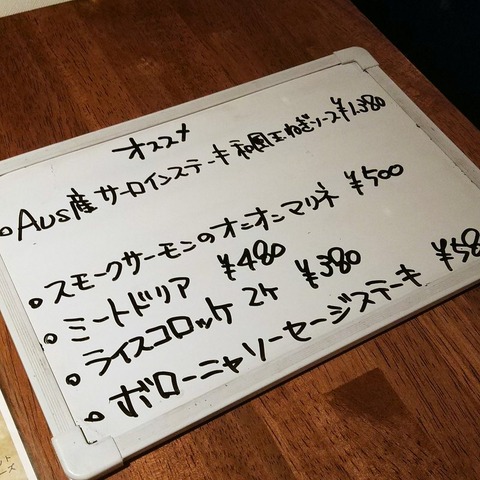 オススメ
• Aus産サーロインステーキ 和風玉ねぎソース ¥1.380
• スモークサーモンのオニオンマリネ ¥500
• ミートドリア ¥480
• ライスコロッケ 2ケ ¥380
• ボローニャソーセージステーキ ¥58
ット
ーズ